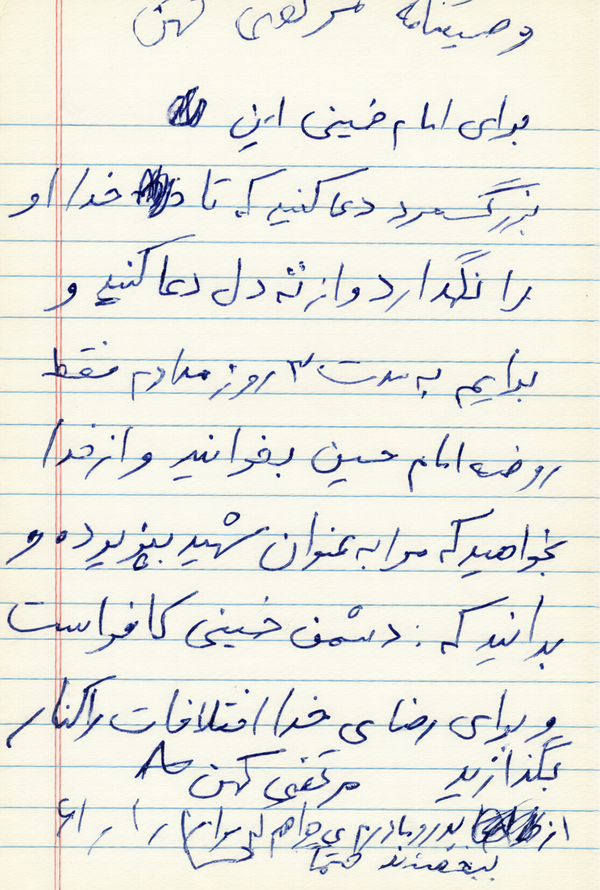 وصیتنامه مرتضی کهن
برای امام خمینی این
بزرگمرد دعا کنید که تا خدا او
را نگدارد و از ته دل دعا کنید و
برایم به مدت ۳ روز مدادم فقط
روضه امام حسین بخوانید و از خدا
بخواهید که مرا به عنوان شهید بپزیرد و
بدانید که : دشمن خمینی کافر است
و برای رضای خدا اختلافات را کنار
بگذازید مرتضی کهن
از پدر و مادرم می خواهم که مرا
ببخشند حتماً